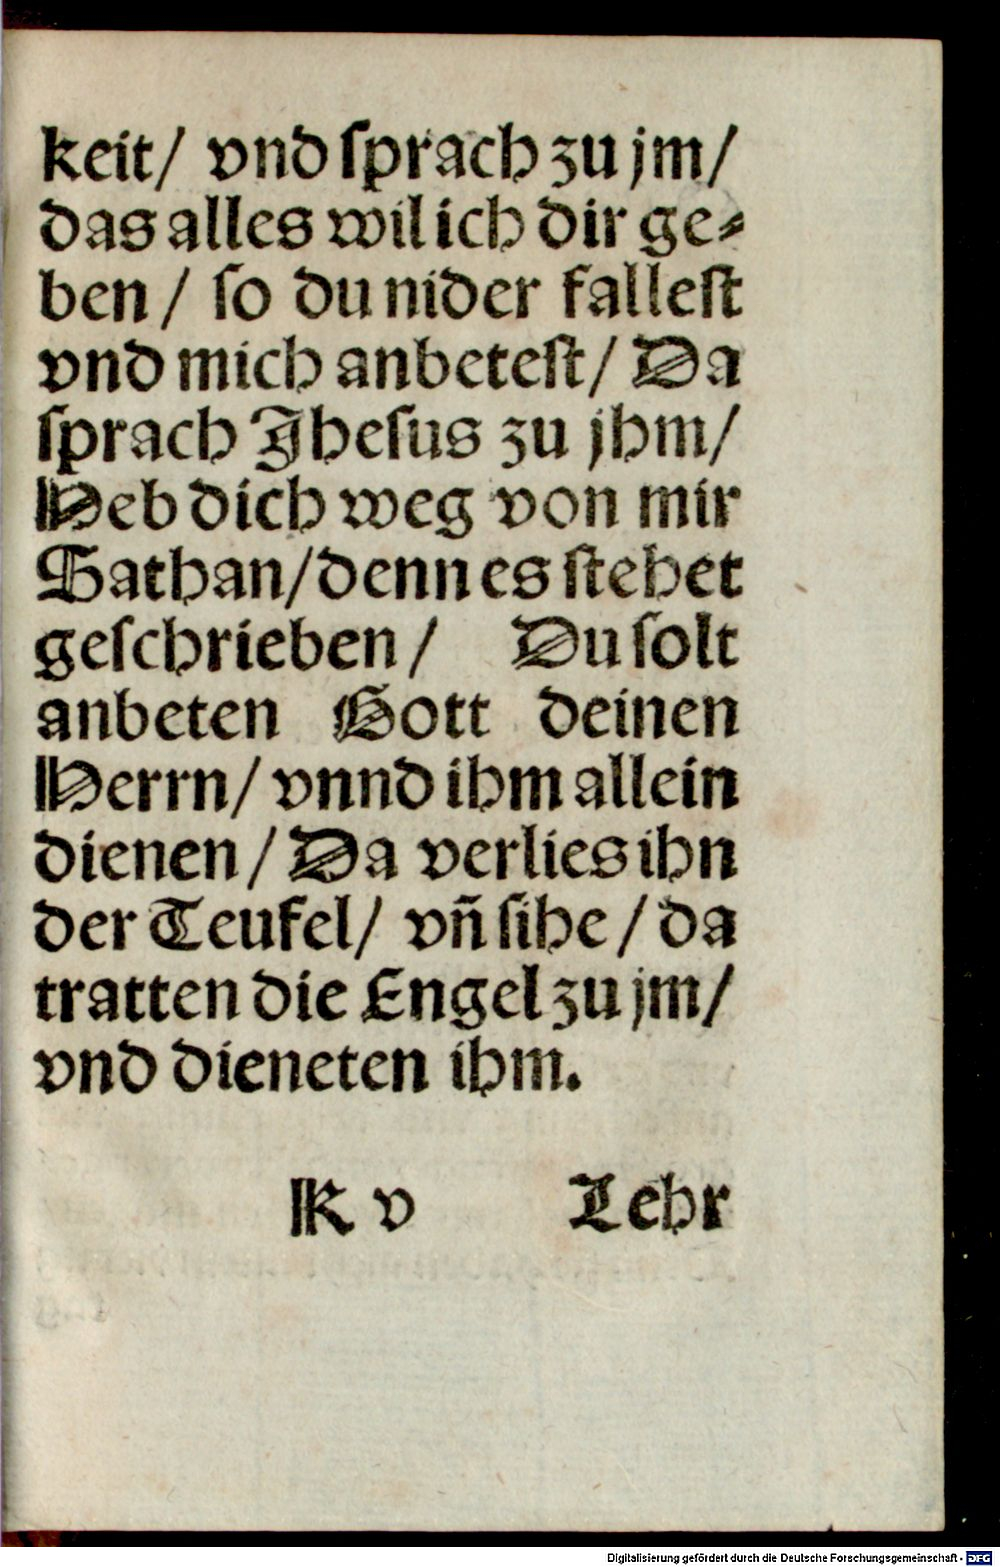 keit/ vnd ſprach zu jm/
das alles wil ich dir ge⸗
ben / ſo du nider falleſt
vnd mich anbeteſt/ Da
ſprach Jheſus zu jhm/
Heb dich weg von mir
Sathan/denn es ſtehet
geſchrieben / Du ſolt
anbeten Gott deinen
Herrn/ vnnd ihm allein
dienen / Da verlies ihn
der Teufel/ vñ ſihe / da
tratten die Engel zu jm/
vnd dieneten ihm.
K v Lehr
Digitalisierung gefördert durch die Deutsche Forschungsgemeinschaft - DFG